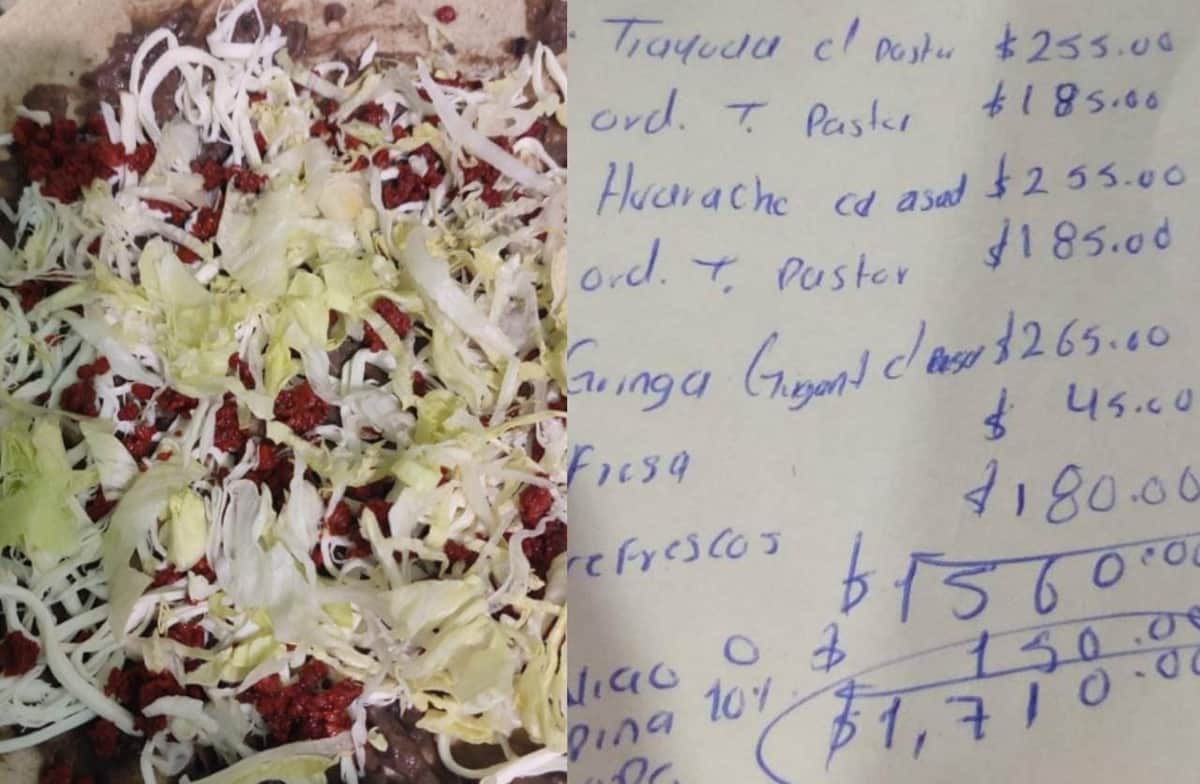 Tlayuda c/ Pastor $255.00
ord. T. Pastor $185.00
Huarache cd asad $255.00
ord. T. Pastor $185.00
Gringa Gigant c/ $265.00
Fresa $ 45.00
refrescos $180.00
$1560.00
0 $ 150.00
10%
$1,710.00